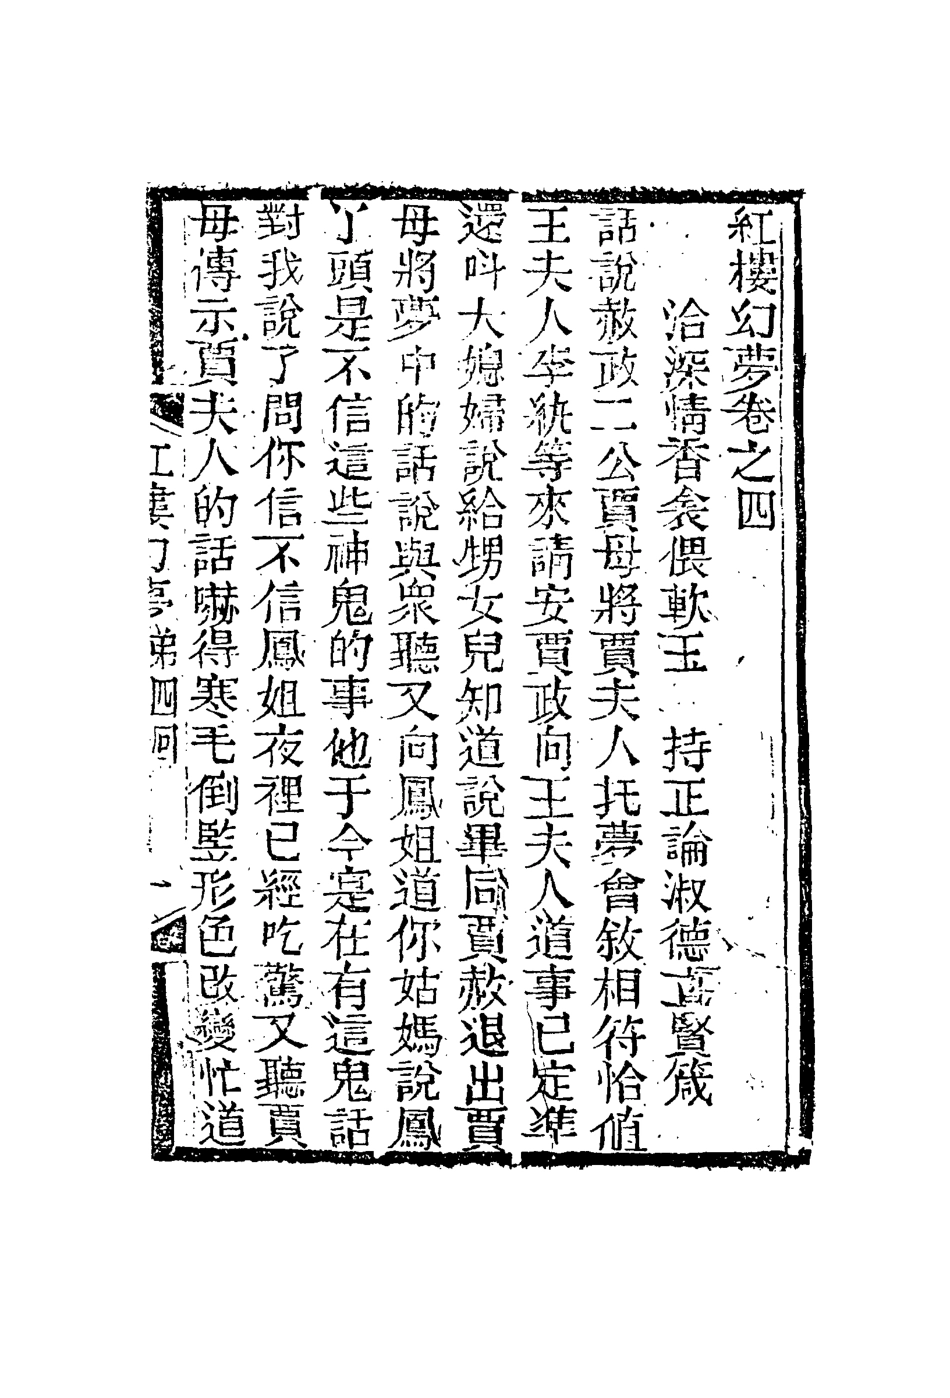 紅樓幻夢卷之四
洽深情香衾偎軟玉　持正論淑德直賢箴
話說赦政二公賈母將賈夫人托夢曾敘相符恰值
王夫人李紈等來請安賈政向王夫人道事已定準
還呌大媳婦說給甥女兒知道說畢同賈赦退出賈
母將夢中的話說與衆聽又向鳳姐道你姑媽說鳳
丫頭是不信這些神鬼的事他于今寔在有這鬼話
對我說了問你信不信鳳姐夜裡已經吃驚又聽賈
母傳示賈夫人的話嚇得寒毛倒監形色改變忙道
紅樓幻夢第四回　一